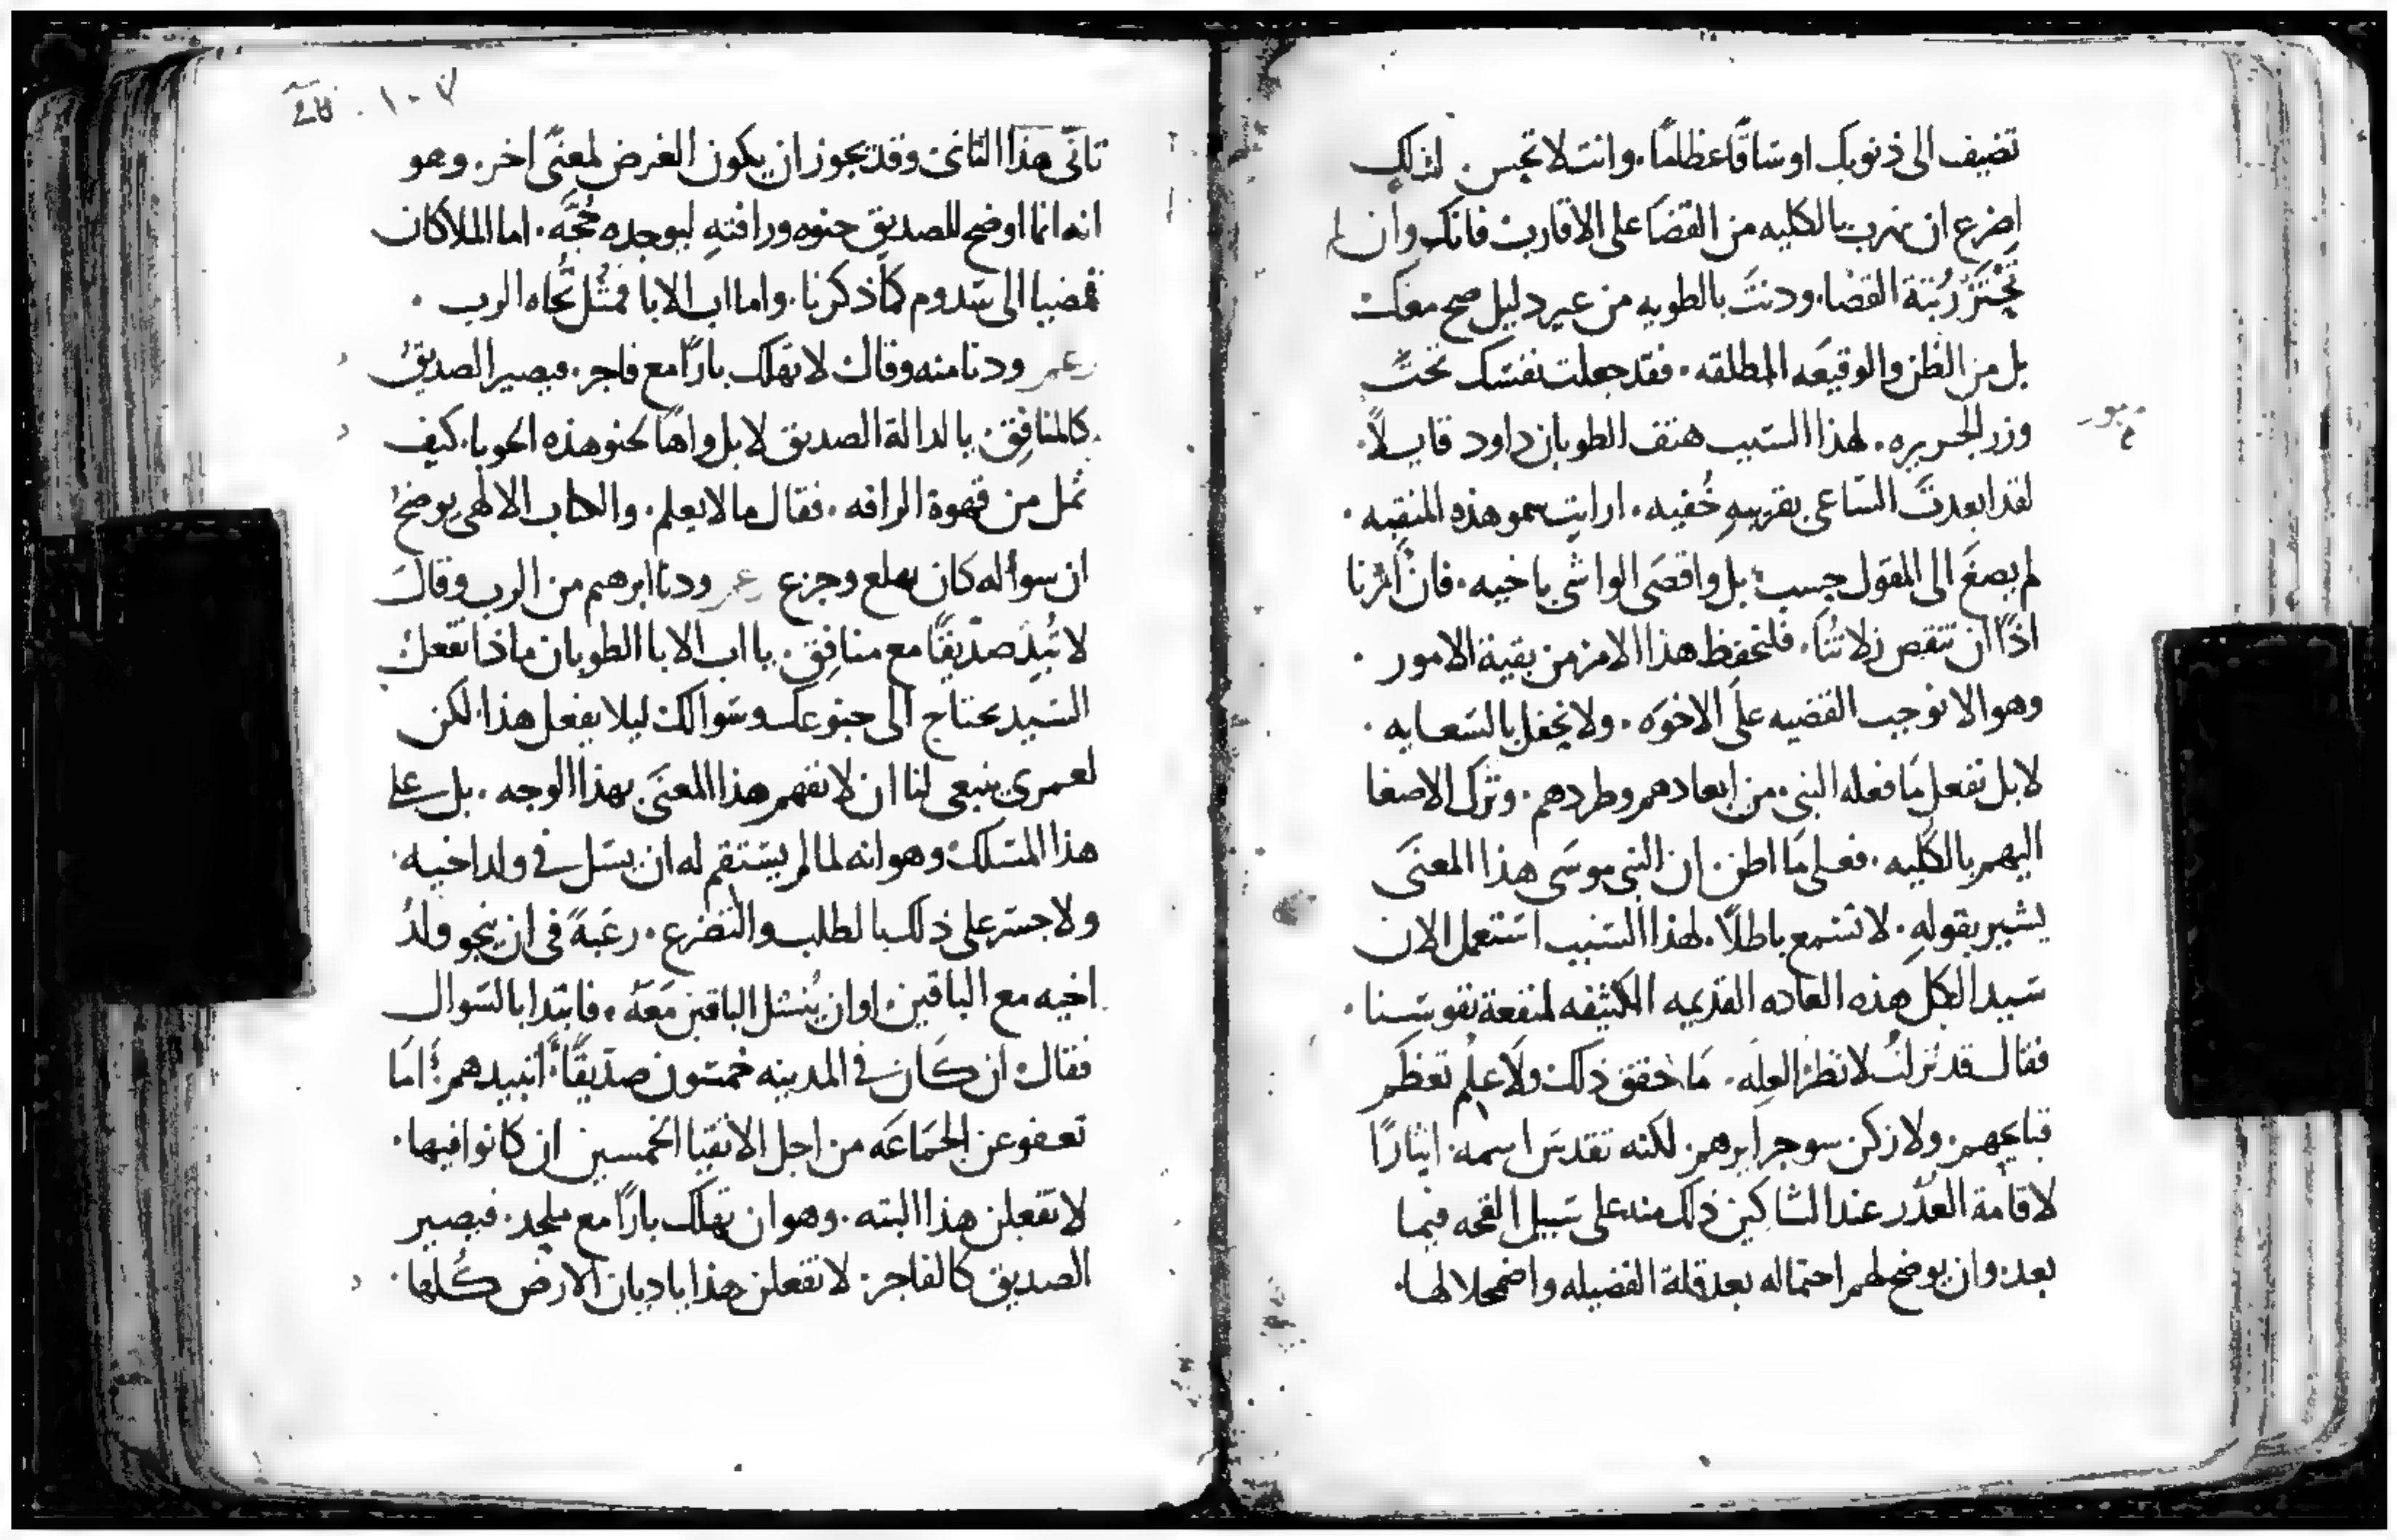 تضيف الى ذنوبك اوساقًا عظامًا. وانت لا تحس. لذلك
اضرع ان نهرب بالكليه من القضا على الاقارب فانك وان لم
رتبة القضا. ودنت بالطويه من غير دليل صح معك
بل من الظن والوقيعه المطلقه. فقد جعلت نفسك تحت
وزر الجريره. لهذا السبب هتف الطوبان داود قايلًا.
لقد ابعدت الساعى بقريبهِ خُفيه. ارايت سمو هذه المنقبه.
لم يصغَ الى المقول حسب بل واقصى الواشى باخيه. فان اثرنا
اذًا ان تنقص زلاتنا. فلنحفظ هذا الامر من بقية الامور.
وهو الا نوجب القضيه على الاخوه. ولا نحفل بالسعايه.
لا بل نفعل ما فعله النبى. من ابعادهم وطردهم. وترك الاصغا
اليهم بالكليه. فعلى ما اظن ان النبى موسى هذا المعنى
يشير بقولهِ. لا تسمع باطلًا. لهذا السبب استعمل الان
سيد الكل هذه العاده القديمه الكثيفه لمنفعة نفوسنا.
فقال قد نزلتُ لانظر العله. ما حقق ذلك ولا علم
قبايحهم. ولا زكن ابرهم. لكنه تقدس اسمه. ايثارًا
لاقامة العذر عند الشاكين ذلك منه على سبيل القحه فيما
بعد. وان يوضح لهم احتماله بعد قلة الفضيله واضمحلالها.
١٠٧
تانّى هذا التانى وقد يجوز ان يكون الغرض لمعنًى اخر. وهو
انه انما اوضح للصديق حنوه ورافتهِ ليوجده حُجَّه. اما الملاكان
فمضيا الى سدوم كما ذكرنا. واما اب الابا فمثُل تُجاه الرب.
ودنا منه وقال لا تهلك بارًا مع فاجر. فيصير الصديق
كالمنافق. يا لدالة الصديق لا بل واهًا لحنو هذه الحوبا. كيف
ثمل من قهوة الرافه. فقال ما لا يعلم. والكتاب الالهى يوضح
ان سواله كان بهلع وجزع ودنا ابرهم من الرب وقال
لا تُبِد صدّيقًا مع منافق. يا اب الابا الطوبان ماذا تفعل
السيد يحتاج الى حنوعك وسوالك ليلا يفعل هذا. لكن
لعمرى ينبغى لنا ان لا نفهم هذا المعنى بهذا الوجه. بل على
هذا المسلك وهو انه لما لم يستقم له ان يسل فى ولد اخيه.
ولا جسر على ذلك بالطلب والتضرع. رغبةً فى ان ينجو ولد
اخيه مع الباقين. او ان يُنشل الباقين معه. فابتدا بالسوال
فقال ان كان فى المدينه خمسون صدّيقًا. اتبيدهم. اما
تعفو عن الجماعه من اجل الاتقيا الخمسين ان كانوا فيها.
لا تفعلن هذا البته. وهو ان تهلك بارًا مع ملحد. فيصير
الصديق كالفاجر. لا تفعلن هذا يا ديان الارض كلها.